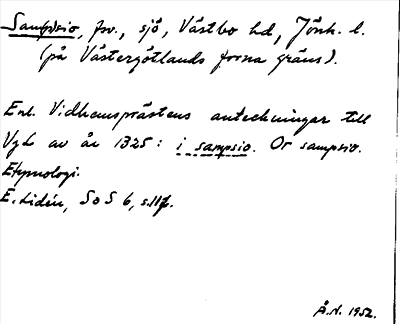 Sampsio, fsv., sjö, Västbo hd, Jönk. l.
(på Västergötlands forna gräns).
Enl. Vidhemsprästens anteckningar till
VgL av år 1325: i sampsio. Or sampsio.
Etymologi.
E. Lidén, SoS 6, s. 11f.
Å.N. 1952.